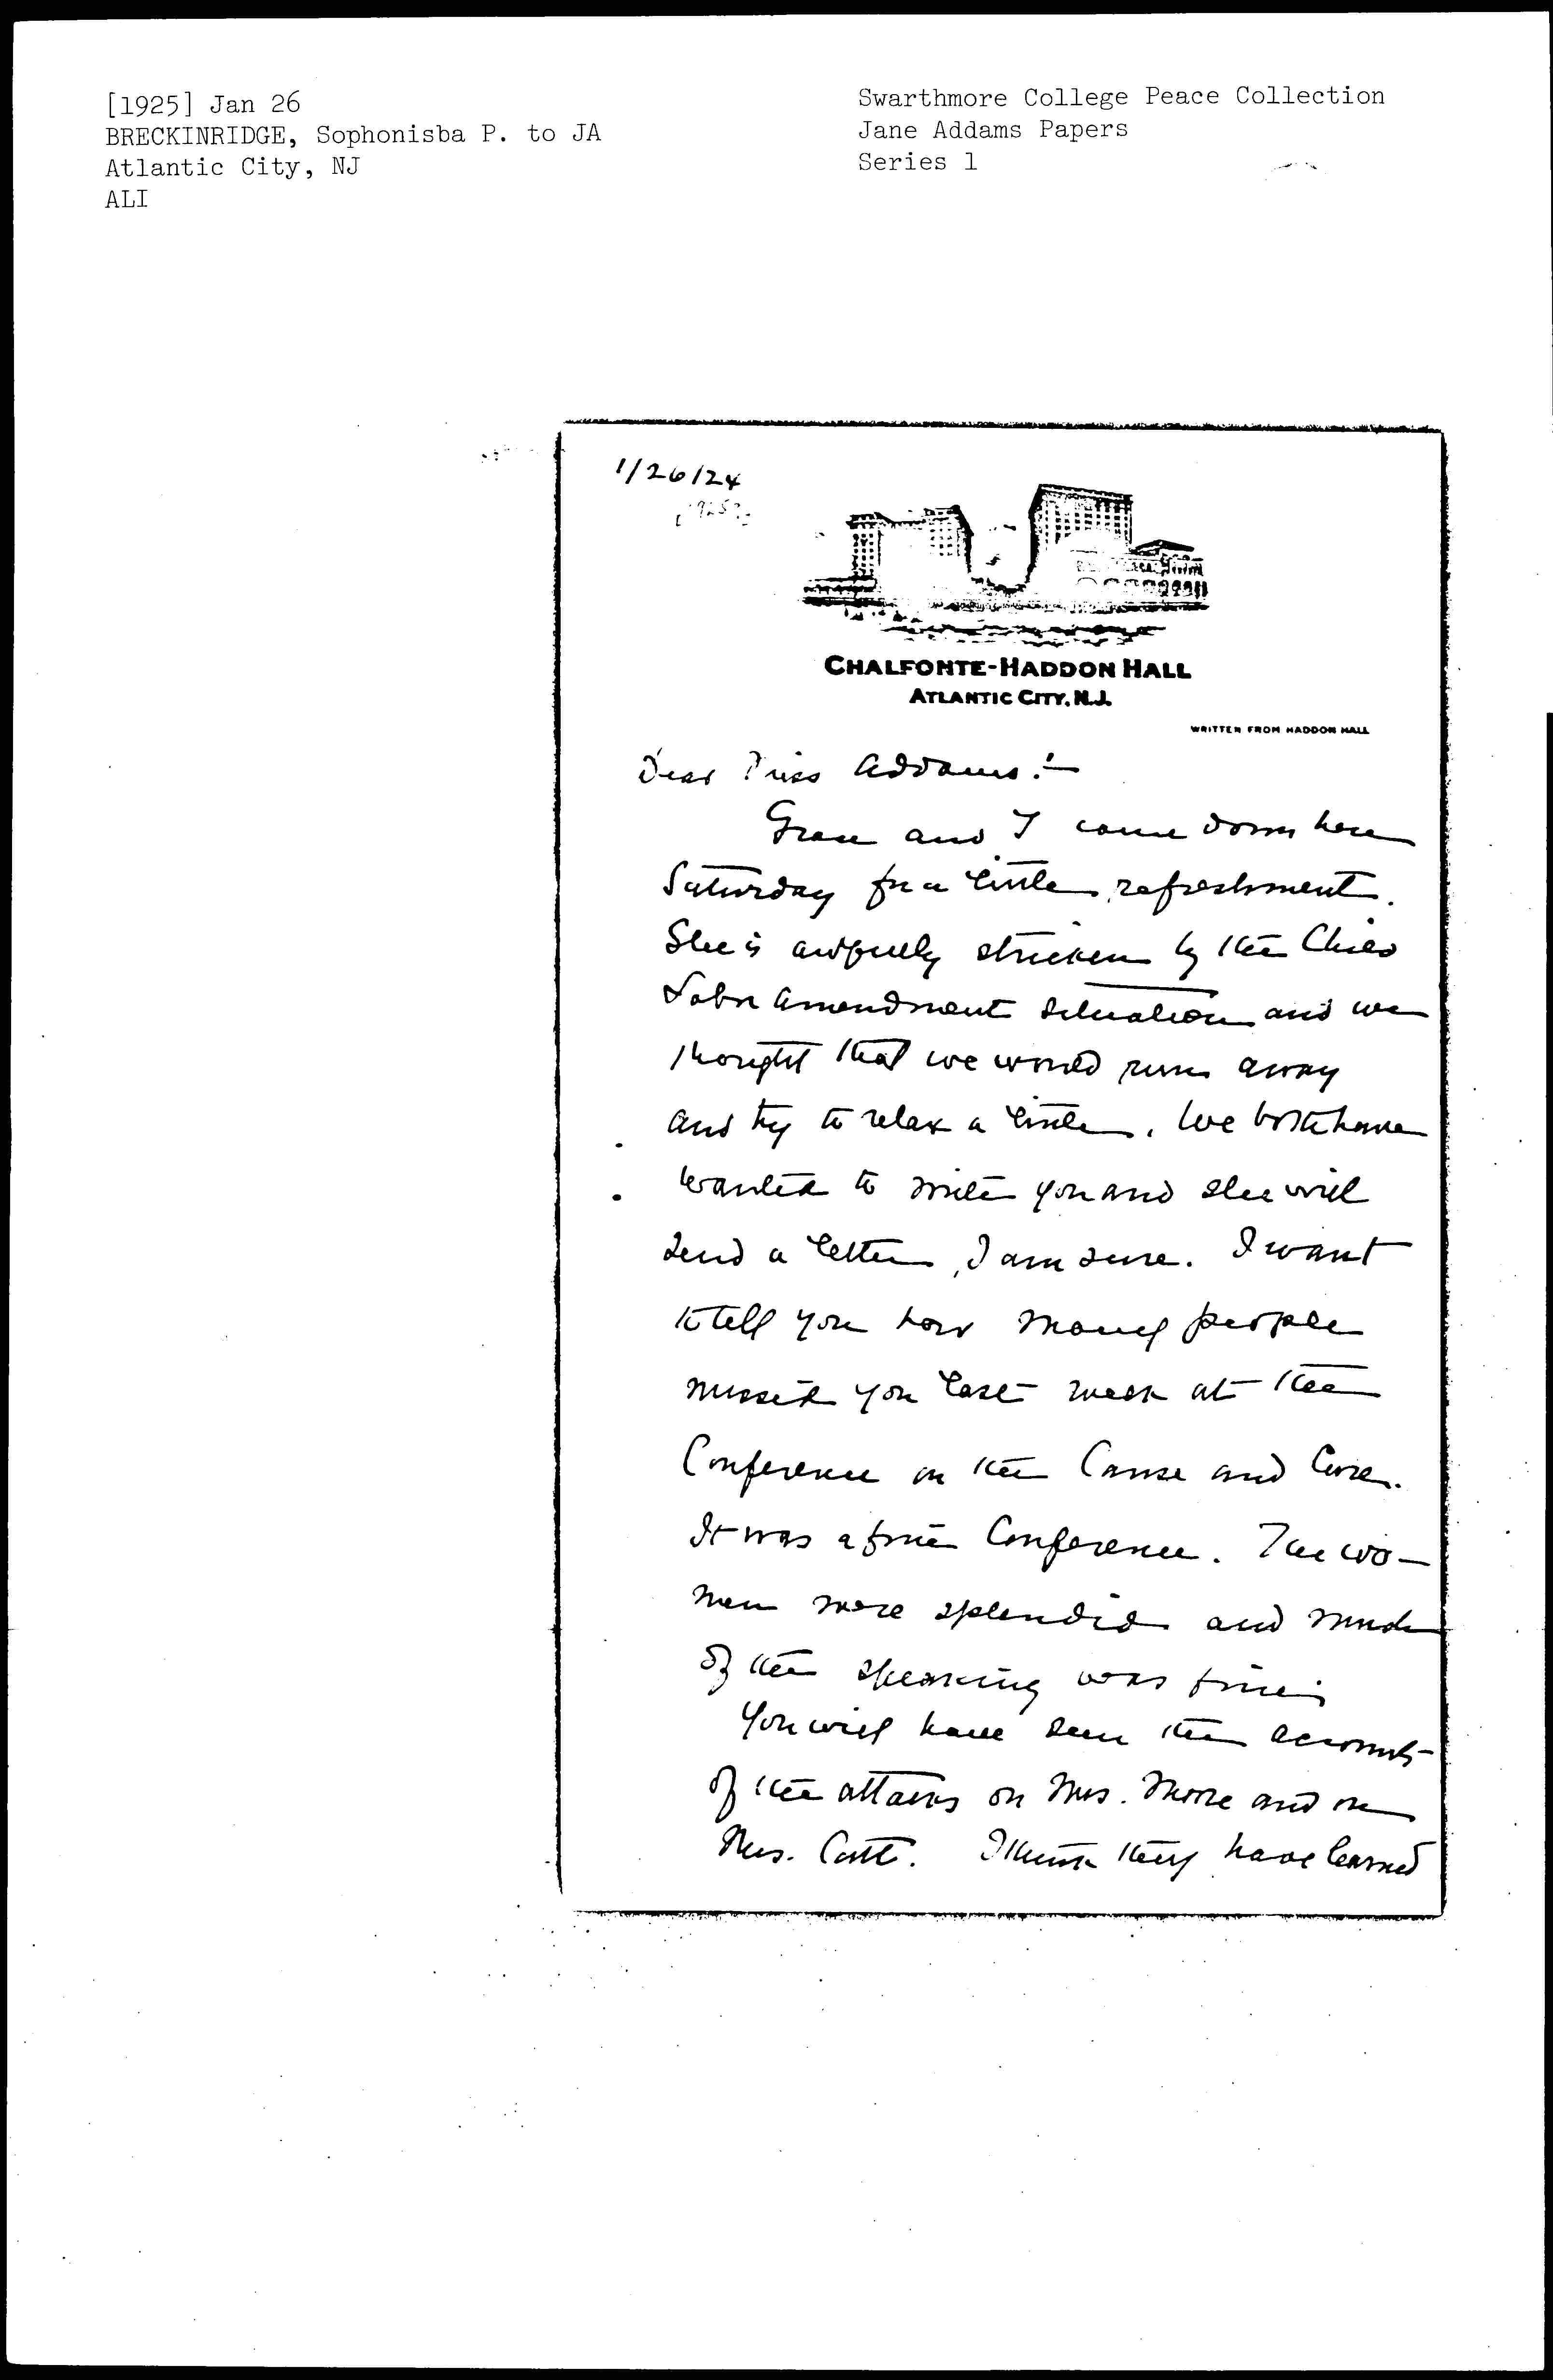 [1925] Jan 26
BRECKINRIDGE, Sophonisba P. to JA
Atlantic City, NJ
ALI
Swarthmore College Peace Collection
Jane Addams Papers
Series 1
1/26/24
[1925?]
CHALFONTE-HADDON HALL
ATLANTIC CITY, N.J.
WRITTEN FROM HADDON HALL
Dear Miss Addams:-
Grace and I came down here
Saturday for a little refreshment.
She is awfully stricken by the Child
Labor Amendment situation and we
thought that we would run away
and try to relax a little. We both have
wanted to write you and she will
send a letter, I am sure. I want
to tell you how many people
missed you last week at the
Conference on the Cause and Cure.
It was a fine Conference. The wo-
men were splendid and much
of the speaking was fine;
You will have seen the accounts
of the attacks on Mrs. Moore and on
Mrs. Catt. I think they have learned